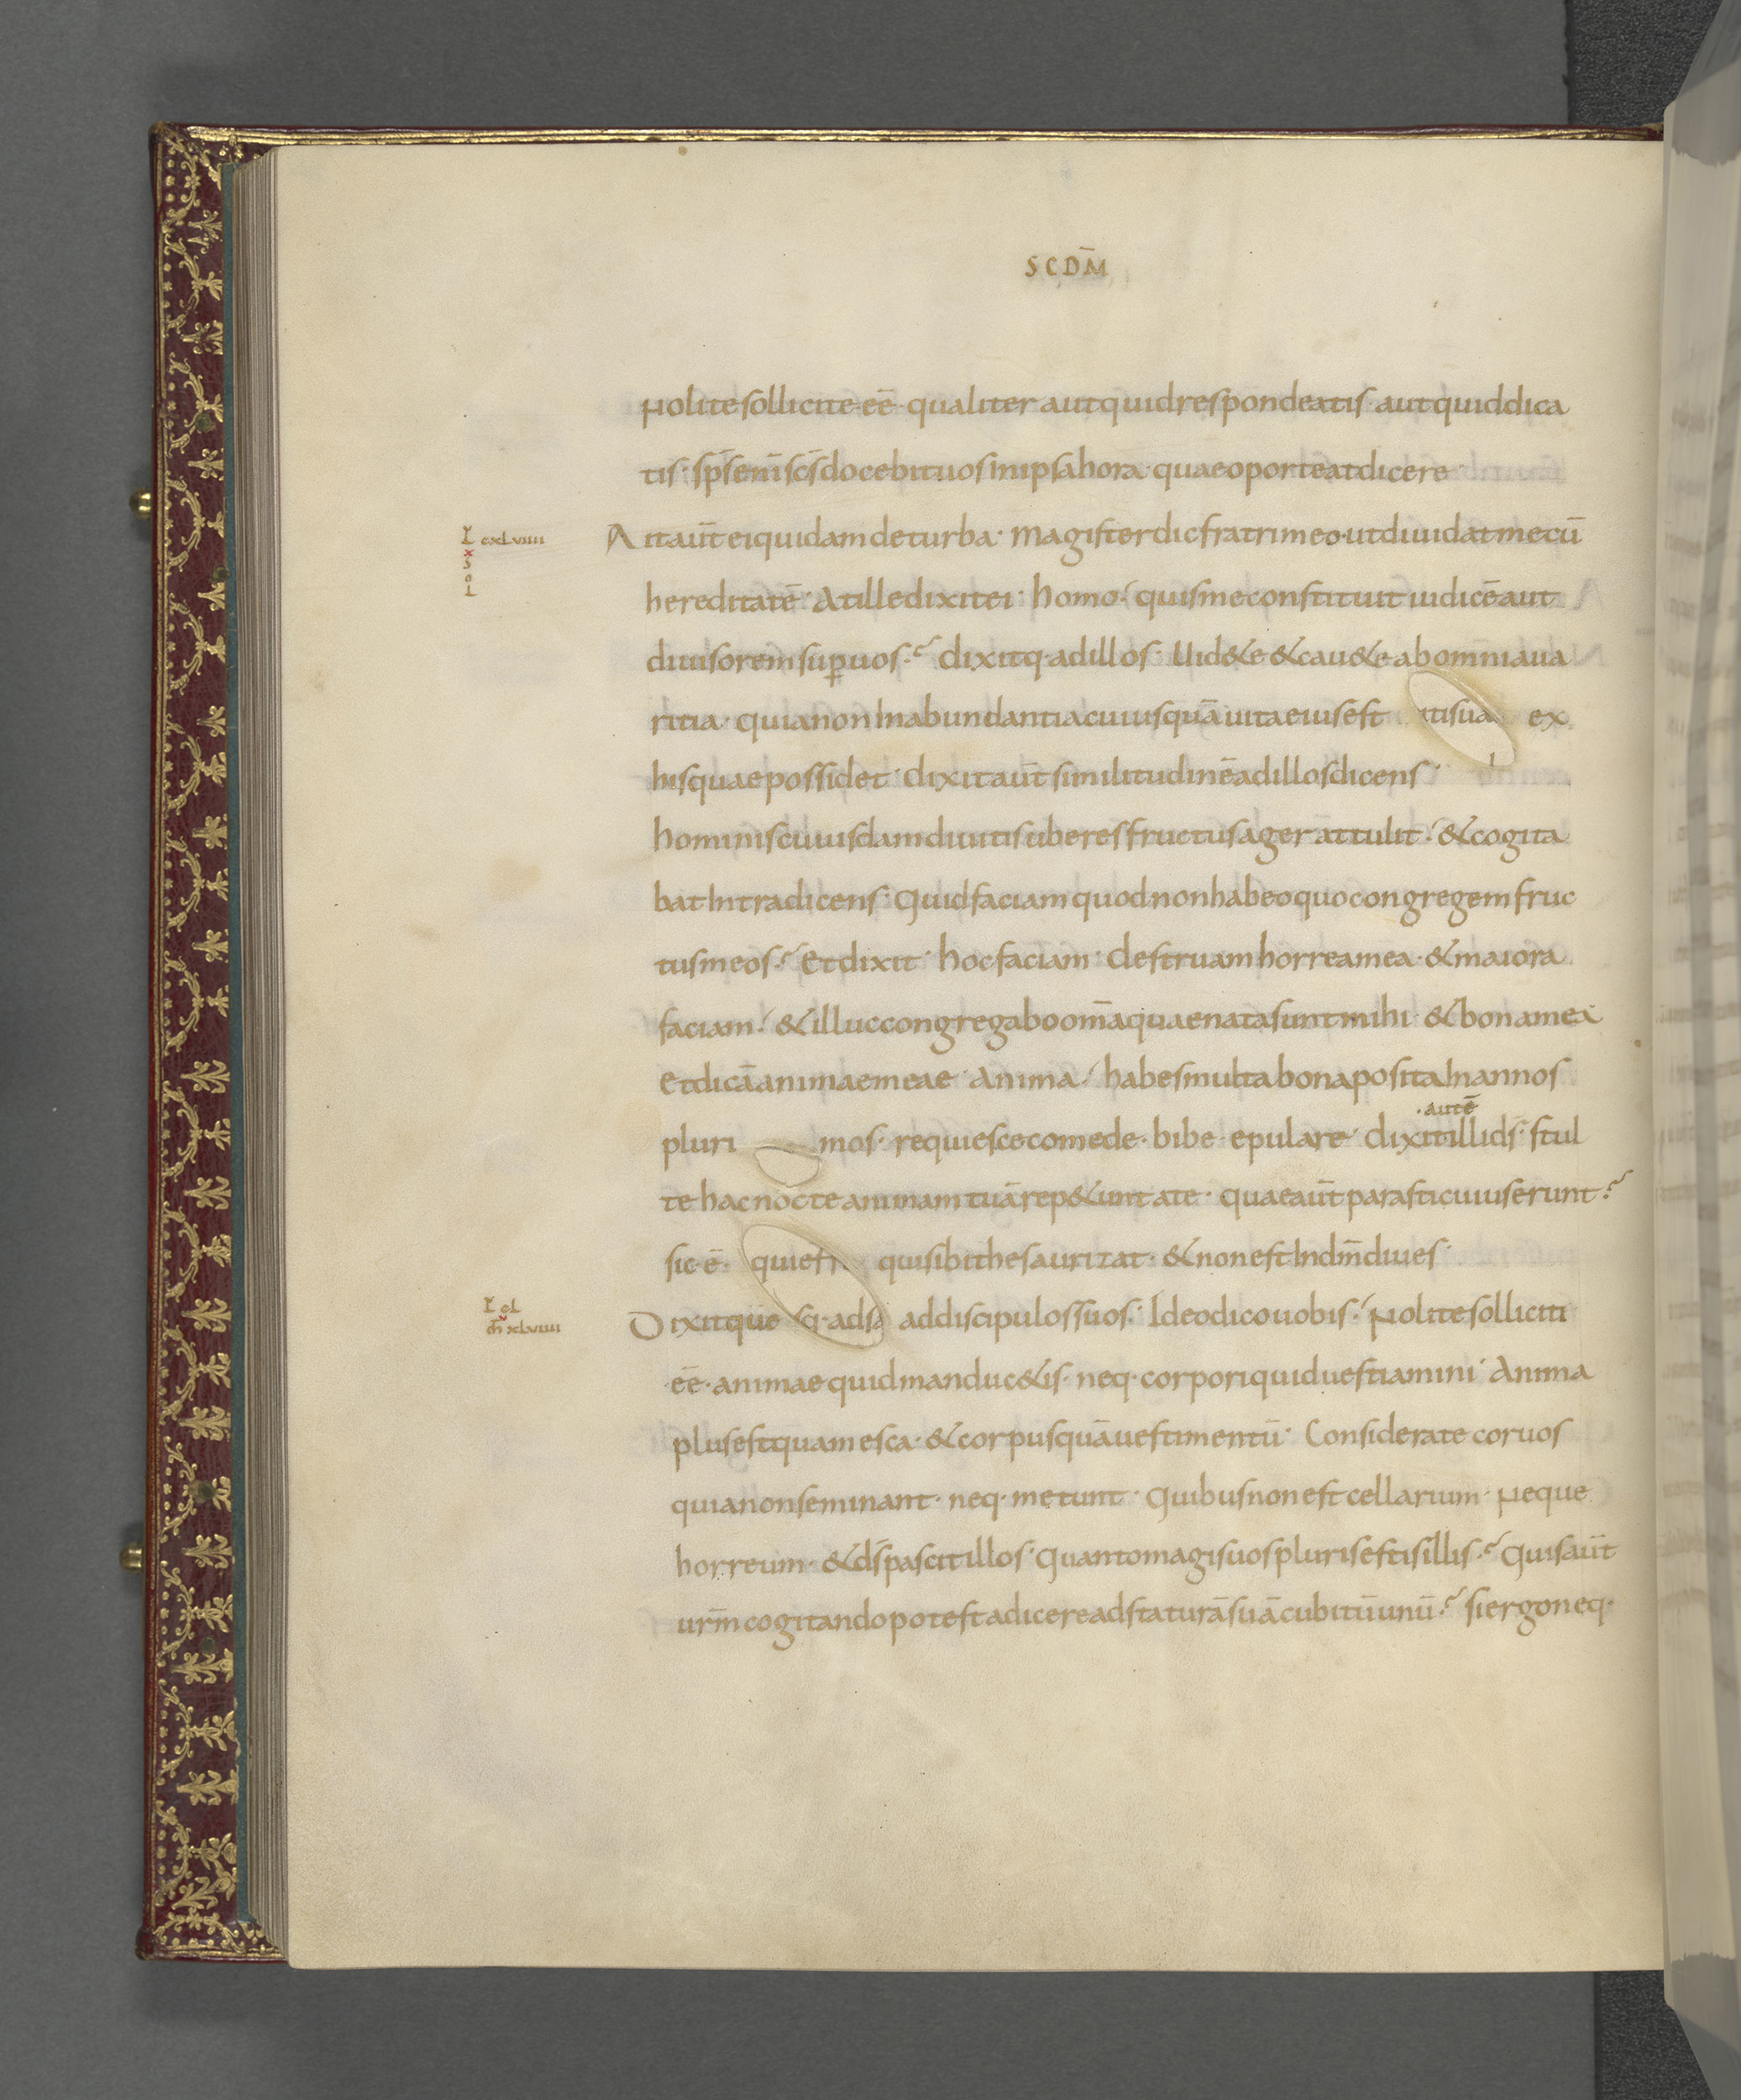 SCDM̄
Nolite solliciti eē · qualiter aut quid respondeatis · aut quid dica
tis · sp̄s eni̅ sc̄s docebit uos in ipsa hora · quae oporteat dicere
L cxLviiii
x
s
o
L
Ait aut̄ ei quidam de turba · Magister dic fratri meo · ut diuidat mecū
hereditatē · At ille dixit ei · homo · quis me constituit iudicē aut
diuisorem sup̲ uos ·? dixitq · ad illos · Uid&e & cau&e ab omni aua
ritia · quia non In abundantia cuiusquā uita eius est ex
his quae possidet · dixit aut̄ similitudinē ad illos dicens ·
hominis cuiusdam diuitis uberes fructus ager attulit · & cogita
bat Intra dicens · Quid faciam quod non habeo quo congregem fruc
tus meos ·? Et dixit · hoc faciam · destruam horrea mea · & maiora
faciam · & illuc congregabo om̄a quae nata sunt mihi · & bona mea
Et dicā animae meae · Anima · habes multa bona posita In annos
· autē
pluri mos · requiesce comede · bibe · epulare · dixit illi d̄s · stul
te hac nocte animam tuā rep&unt a te · quae aut̄ parasti cuius erunt ·?
sic · ē · qui sibi thesaurizat · & non est In dm̄ diues ·
L cL
m̄ xLviiii
Dixitque ad discipulos suos · Ideo dico uobis · Nolite solliciti
eē · animae quid manduc&is · neq · corpori quid uestiamini · Anima
plus est quam esca · & corpus quā uestimentū · Considerate coruos
quia non seminant · neq · metunt · Quibus non est cellarium · Neque
horreum · & d̄s pascit illos · Quanto magis uos pluris estis illis ·? Quis aut̄
urm̄ cogitando potest adicere ad staturā suā cubitū unū ·? si ergo neq ·